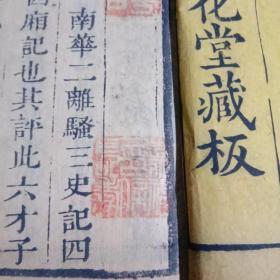 花堂藏板
南華二離騷三史記四
廂記也其評此六才子